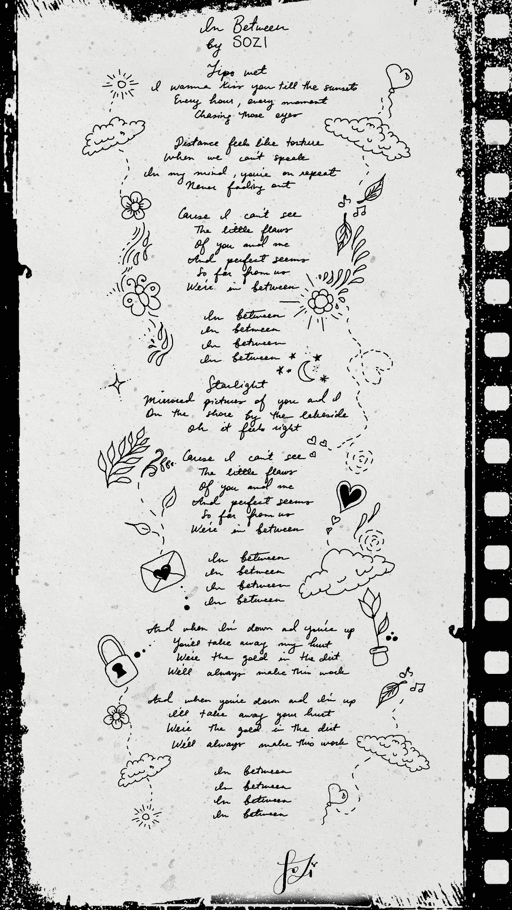 In Between
by SOZI
Lips wet
I wanna kiss you till the sunsets
Every hour, every moment
Chasing those eyes
Distance feels like torture
When we can't speak
In my mind, you're on repeat
Never fading out
Cause I can't see
The little flaws
Of you and me
And perfect seems
So far from us
We're in between
In between
In between
In between
In between
Starlight
Mirrored pictures of you and I
On the shore by the lakeside
Oh it feels right
Cause I can't see
The little flaws
Of you and me
And perfect seems
So far from us
We're in between
In between
In between
In between
In between
And when I'm down and you're up
You'll take away my hurt
We're the gold in the dirt
We'll always make this work
And when you're down and I'm up
I'll take away your hurt
We're the gold in the dirt
We'll always make this work
In between
In between
In between
In between
Sozi